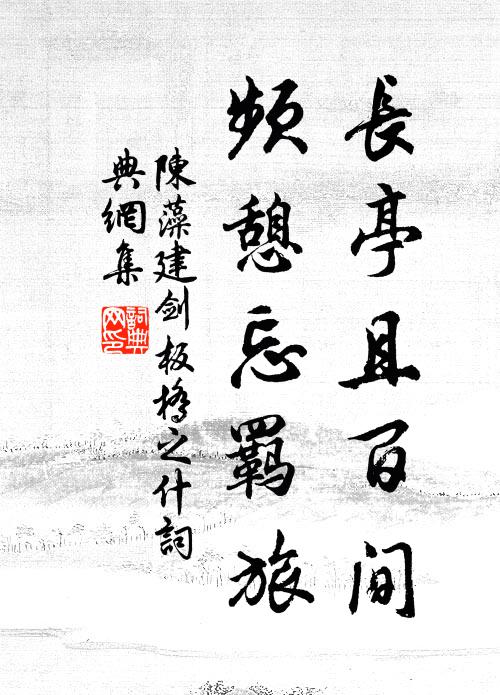 長亭且百间
頻憩忘羈旅
陳藻建剑板橋之什詞
典網集
詞典
网印